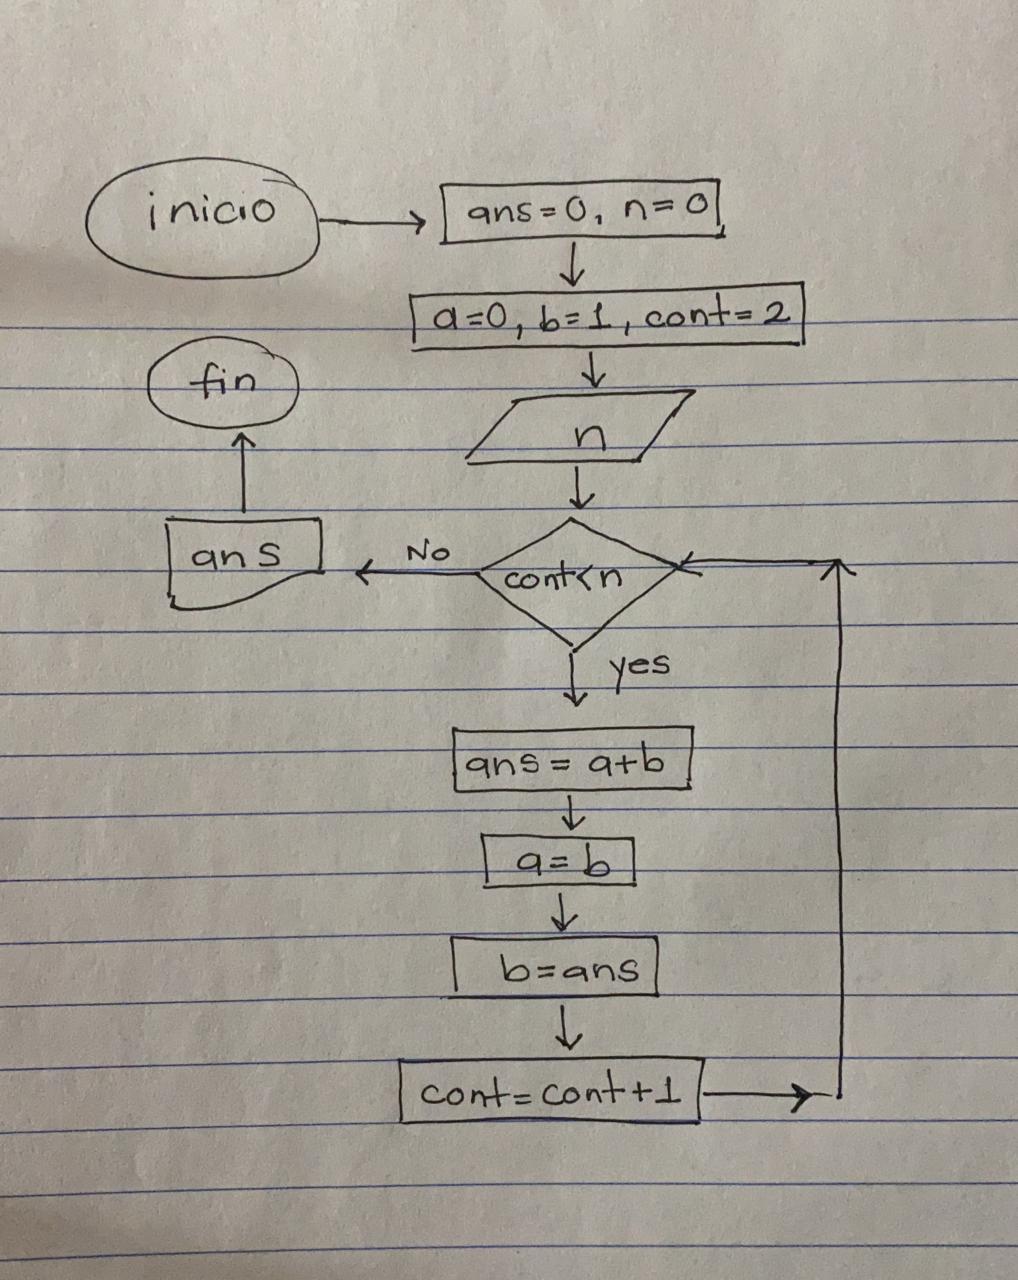 inicio
ans=0, n=0
a=0, b=1, cont=2
fin
n
ans
No
cont<n
yes
ans = a+b
a=b
b=ans
cont=cont+1